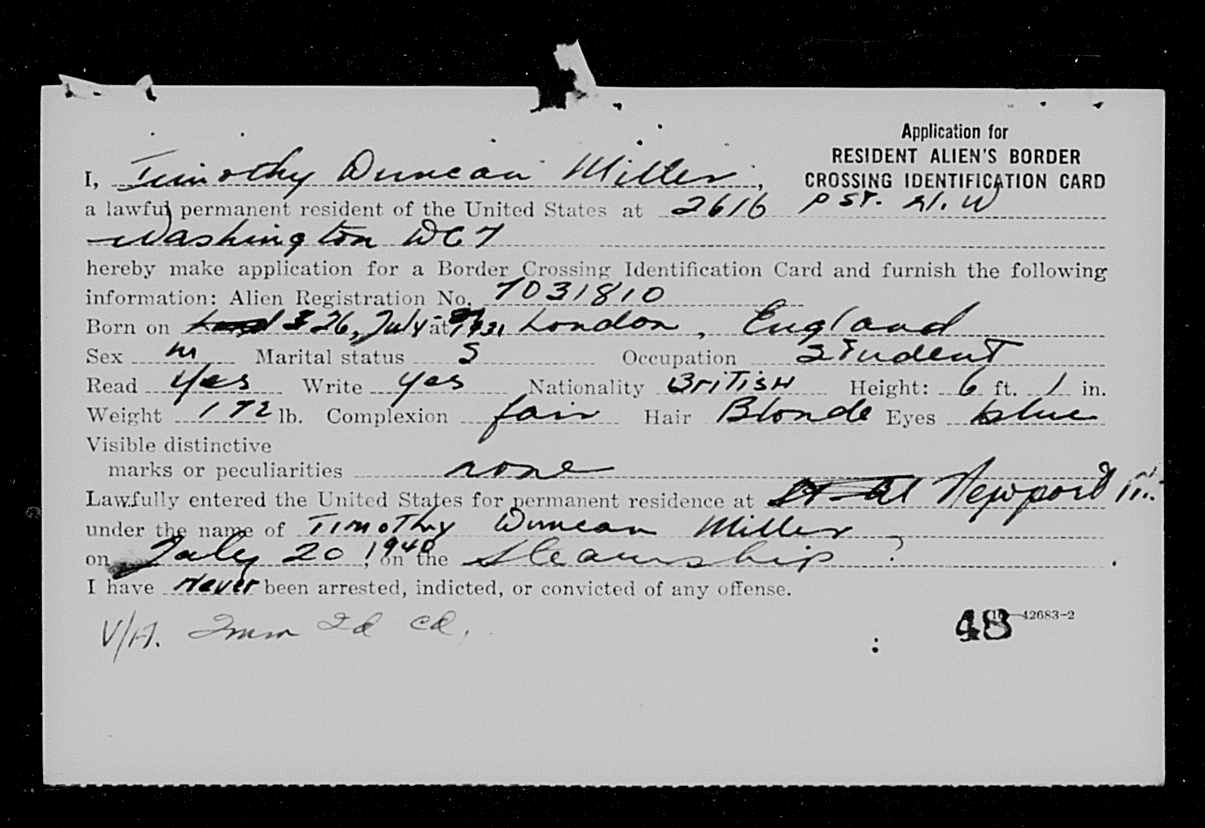 Application for
RESIDENT ALIEN'S BORDER
CROSSING IDENTIFICATION CARD
I, Timothy Duncan Miller,
a lawful permanent resident of the United States at 2616 P ST. N.W
Washington DC 7
hereby make application for a Border Crossing Identification Card and furnish the following
information: Alien Registration No. 7031810
Born on 26, July at London, England
Sex m Marital status S Occupation Student
Read yes Write yes Nationality British Height: 6 ft. 1 in.
Weight 172 lb. Complexion fair Hair Blonde Eyes blue
Visible distinctive
marks or peculiarities none
Lawfully entered the United States for permanent residence at Newport
under the name of Timothy Duncan Miller
on July 20 1940, on the Steamship ?
I have Never been arrested, indicted, or convicted of any offense.
V/A. Imm Id cd.
48 42683-2